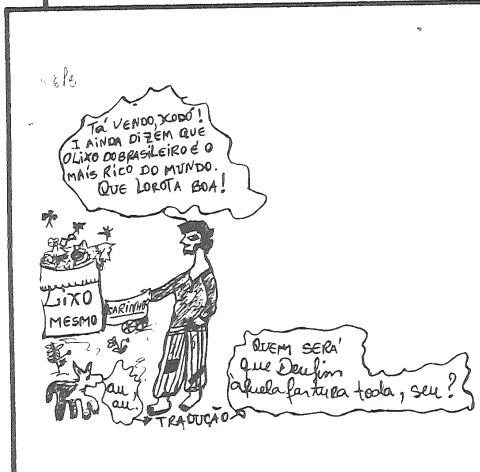 Tá VENDO, XODÓ!
I AINDA DIZEM QUE
O LIXO DO BRASILEIRO É O
MAIS RICO DO MUNDO.
QUE LOROTA BOA!
LIXO
MESMO
SARINHO
au
au!
TRADUÇÃO
QUEM SERÁ
que Deu fim
àquela fartura toda, seu?